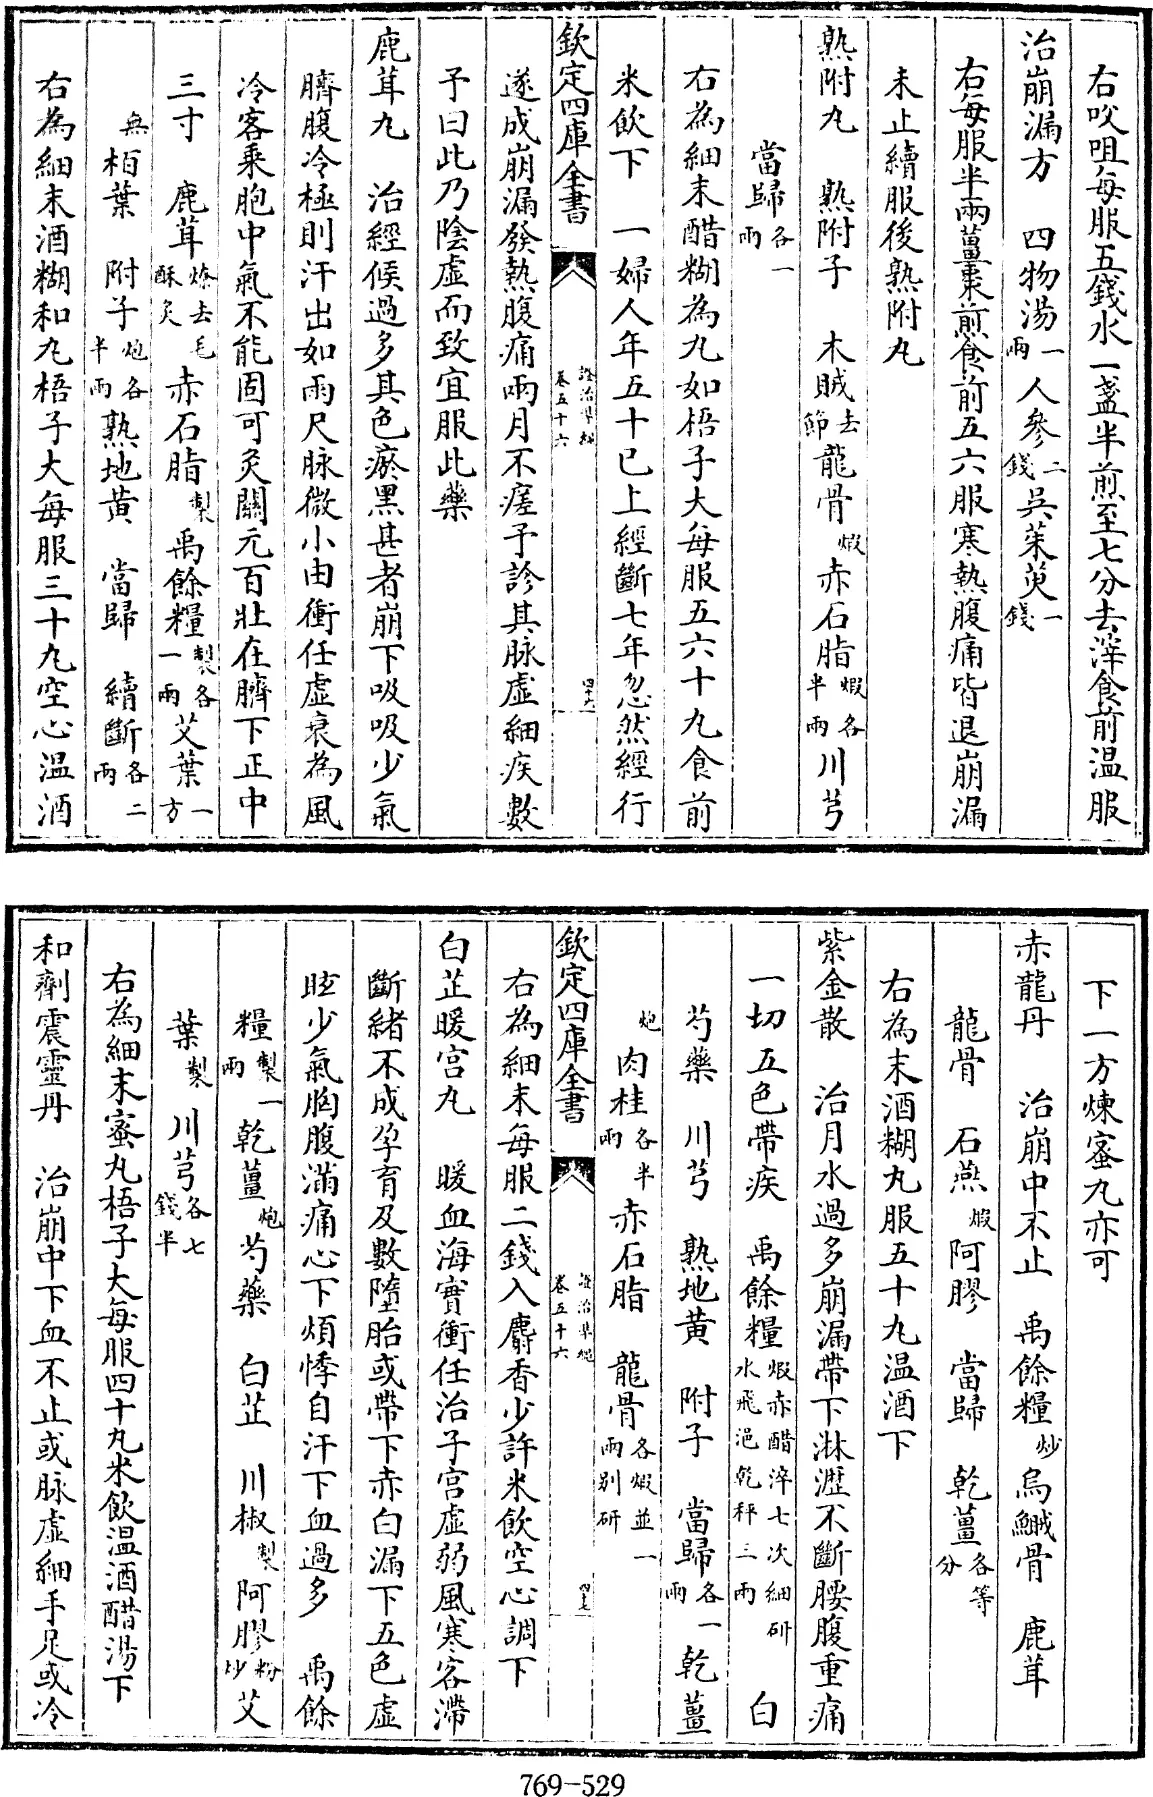 右㕮咀每服五錢水一盞半煎至七分去滓食前温服
治崩漏方　四物湯一兩人參二錢吳茱萸一錢
右每服半兩薑棗煎食前五六服寒熱腹痛皆退崩漏
未止續服後熟附丸
熟附丸　熟附子　木賊去節龍骨煅赤石脂煅各半兩川芎
當歸各一兩
右為細末醋糊為丸如梧子大每服五六十丸食前
米飲下　一婦人年五十已上經斷七年忽然經行
欽定四庫全書　證治準繩卷五十六　四十六
遂成崩漏發熱腹痛兩月不瘥予診其脉虛細疾數
予曰此乃陰虛而致宜服此藥
鹿茸丸　治經候過多其色瘀黑甚者崩下吸吸少氣
臍腹冷極則汗出如雨尺脉微小由衝任虛衰為風
冷客乘胞中氣不能固可灸關元百壯在臍下正中
三寸　鹿茸燎去毛酥炙赤石脂製禹餘糧製各一兩艾葉一方
無栢葉　附子炮各半兩熟地黄　當歸　續斷各二兩
右為細末酒糊和丸梧子大每服三十丸空心温酒
下一方煉蜜丸亦可
赤龍丹　治崩中不止　禹餘糧炒烏鰂骨　鹿茸
龍骨　石燕煅阿膠　當歸　乾薑各等分
右為末酒糊丸服五十丸温酒下
紫金散　治月水過多崩漏帶下淋瀝不斷腰腹重痛
一切五色帶疾　禹餘糧煅赤醋淬七次細研水飛浥乾秤三兩　白
芍藥　川芎　熟地黄　附子　當歸各一兩乾薑
炮　肉桂各半兩赤石脂　龍骨各煅並一兩别研
欽定四庫全書　證治準繩卷五十六　四十七
右為細末每服二錢入麝香少許米飲空心調下
白芷暖宫丸　暖血海實衝任治子宫虛弱風寒客滯
斷緒不成孕育及數墮胎或帶下赤白漏下五色虛
眩少氣胸腹滿痛心下煩悸自汗下血過多　禹餘
糧製一兩乾薑炮芍藥　白芷　川椒製阿膠粉炒艾
葉製川芎各七錢半
右為細末蜜丸梧子大每服四十丸米飲温酒醋湯下
和劑震靈丹　治崩中下血不止或脉虛細手足或冷
769-529